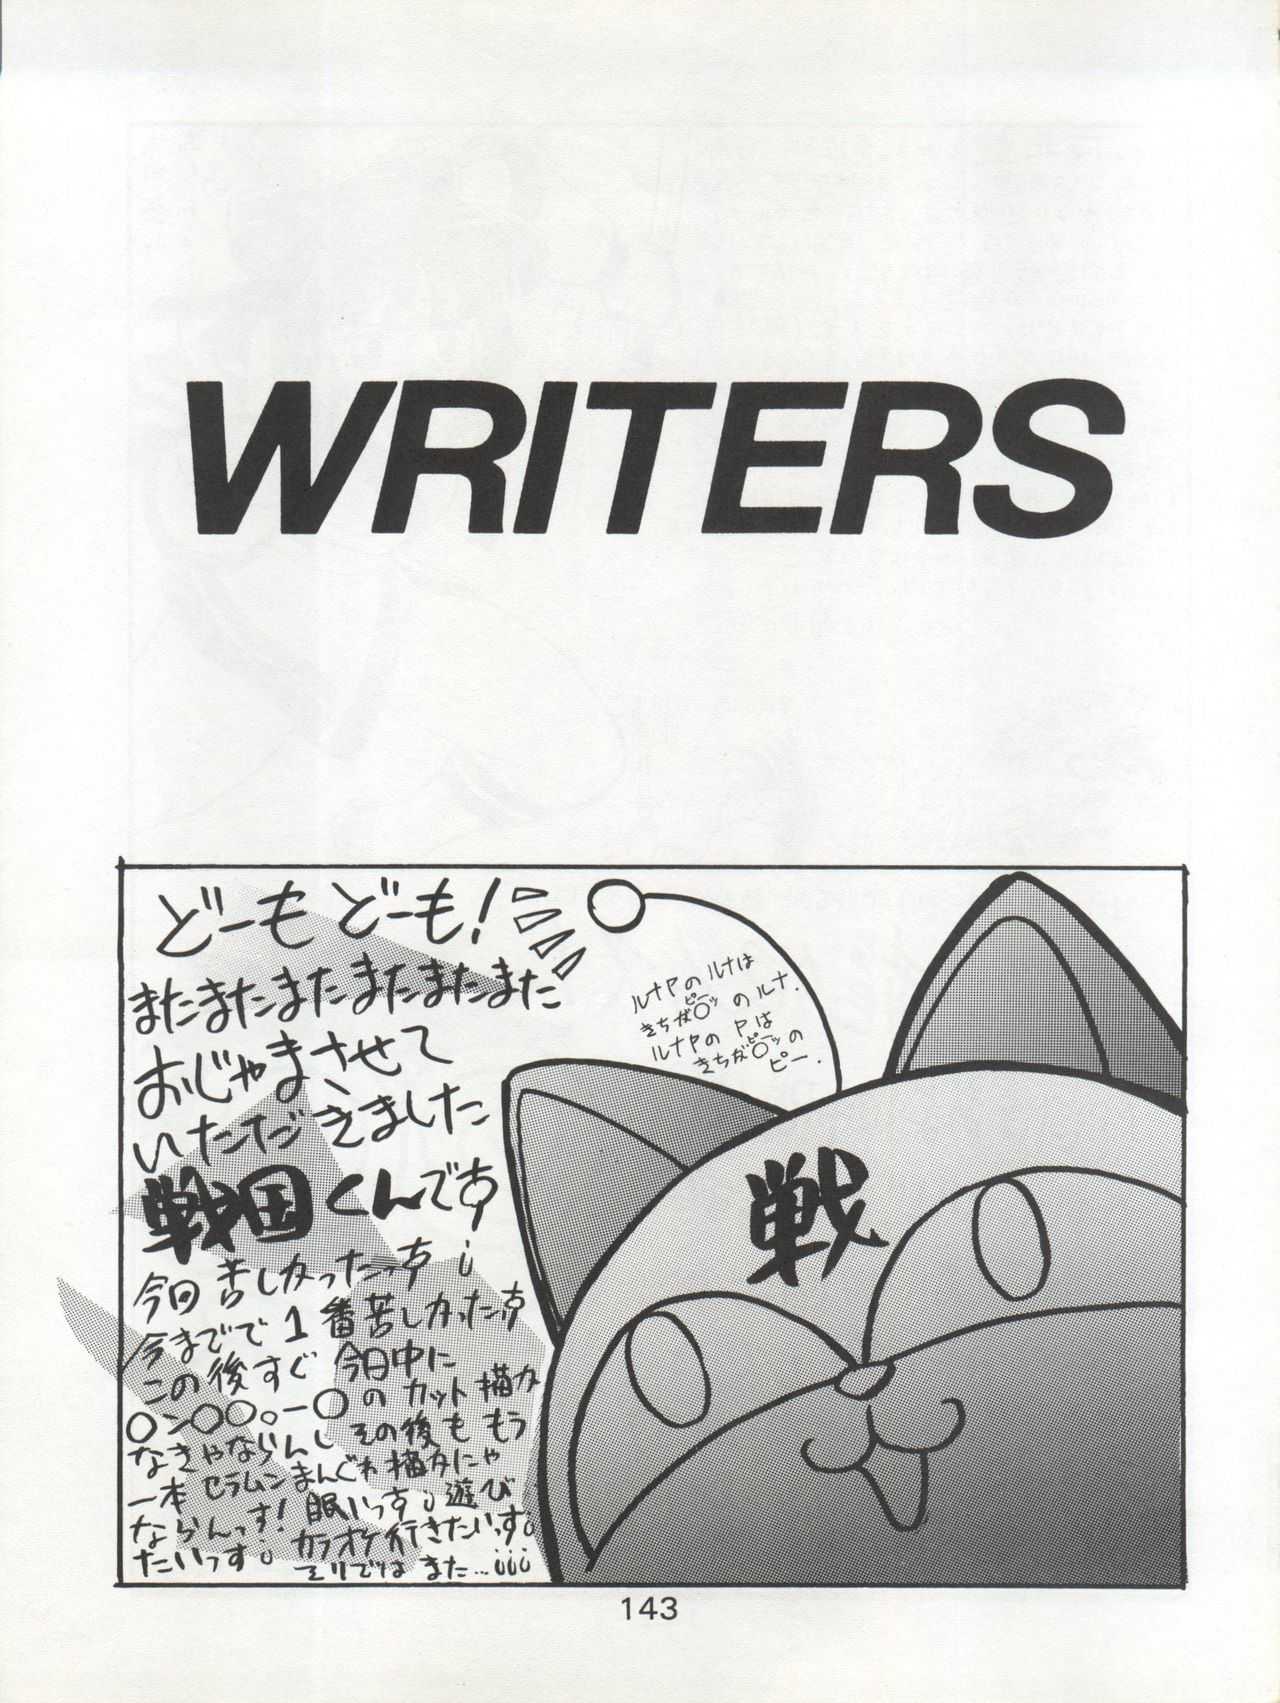 WRITERS
どーも どーも!
またまたまたまたまたまた
おじゃまさせて
いただきました
戦国くんです
今回苦しかったっす
今までで1番苦しかったす
この後すぐ今日中に
〇ン〇〇。ー〇のカット描か
なきゃならんしその後ももう
一本セラムンまんぐゎ描かにゃ
ならんっす!眠いっす 遊び
たいっす カラオケ行きたいっす
そりではまた…
ルナPのルナは
きちが〇ピーッのルナ.
ルナPのPは
きちが〇ピーッの
ピー.
戦
143